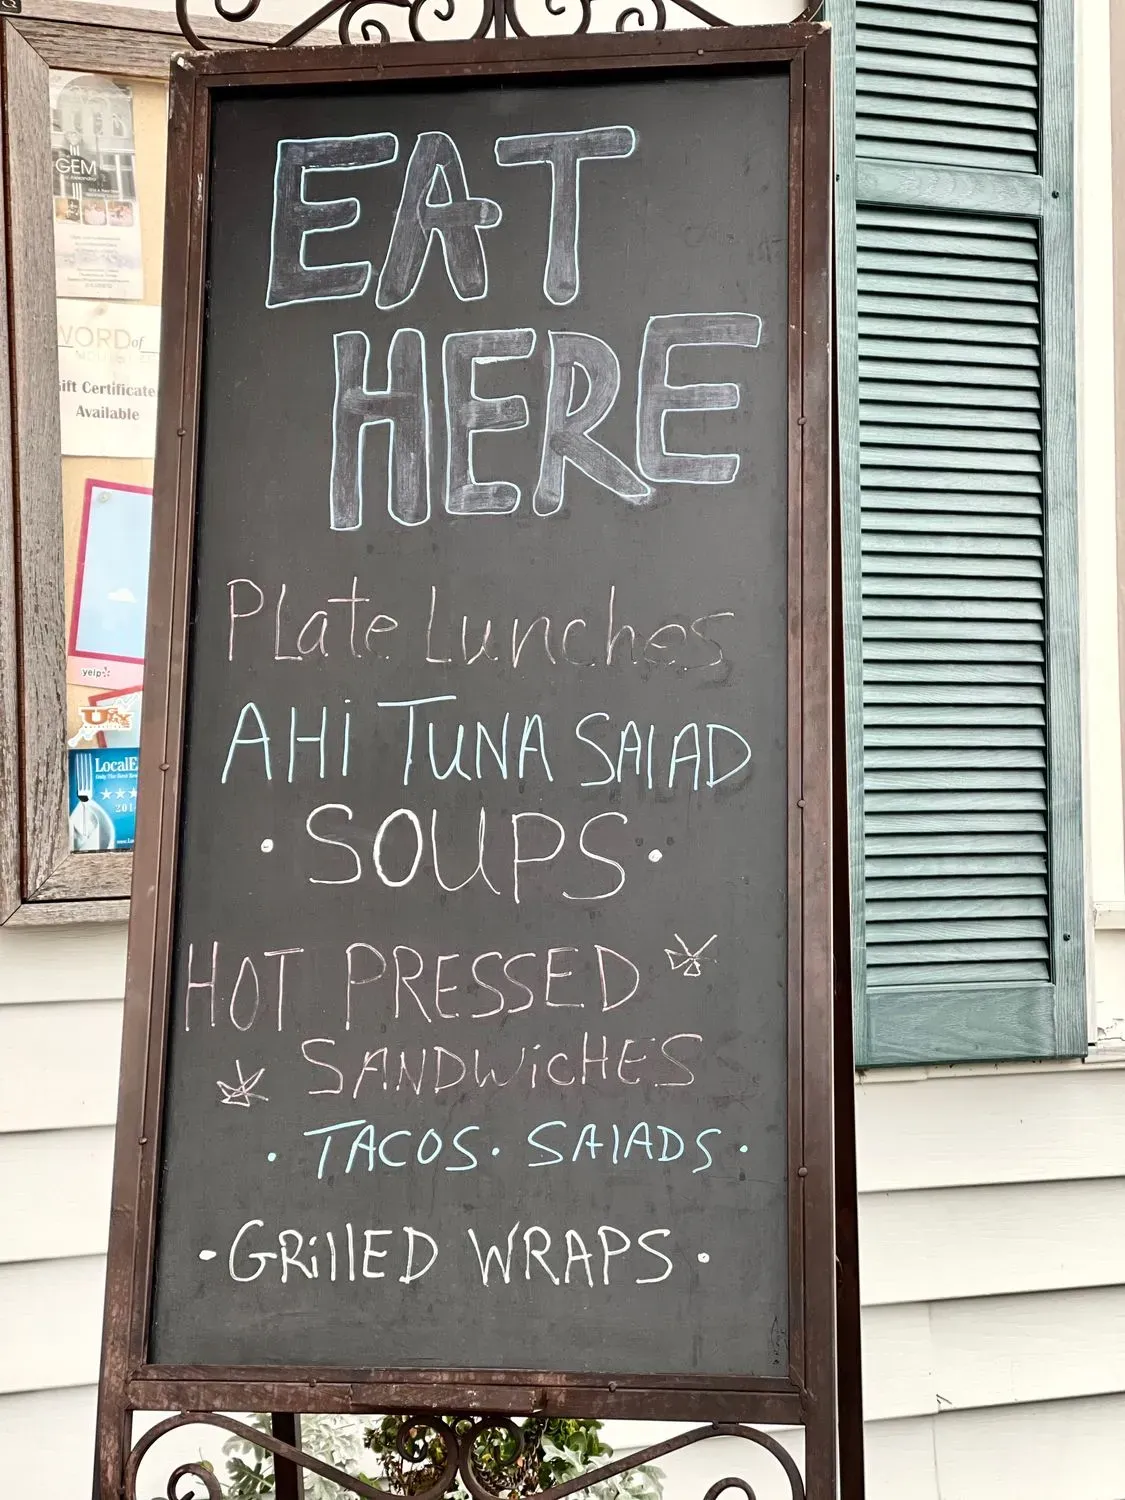 EAT
HERE
Plate Lunches
AHi TUNA SAlAD
• SOUPS •
HOT PRESSED
SANDWiCHES
• TACOS • SAlADS •
• GRillED WRAPS •
GEM
WORD of
ift Certificate
Available
yelp
LocalE
201